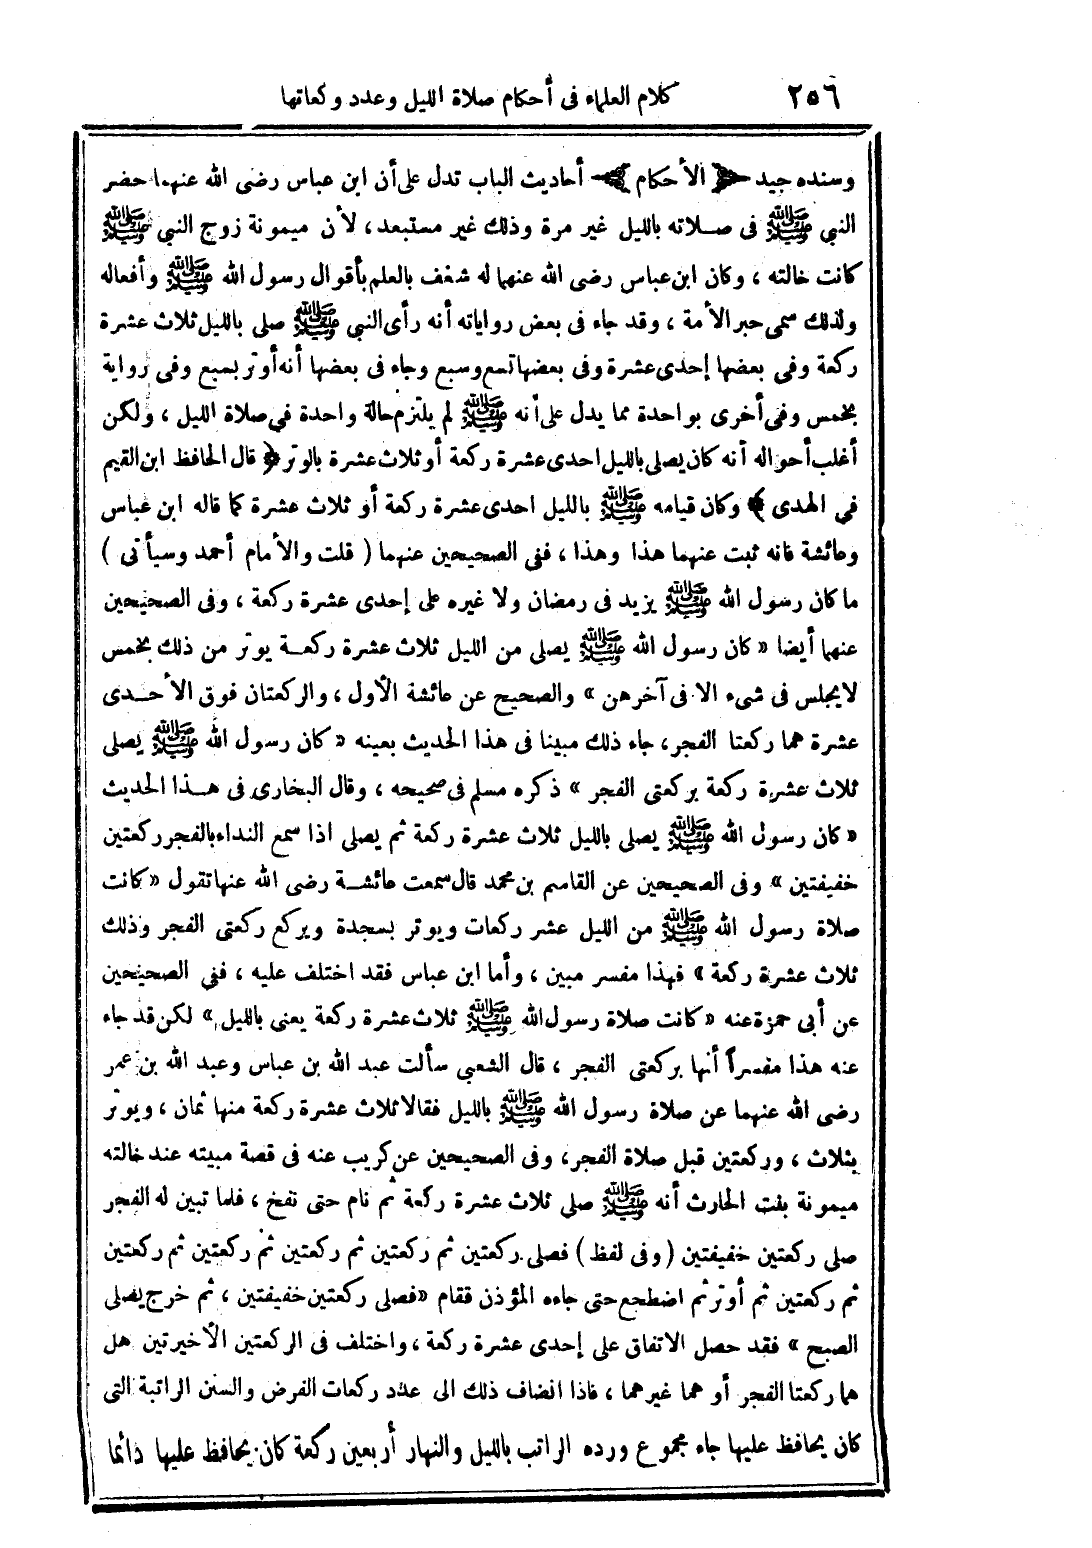 ٢٥٦ كلام العلماء فى أحكام صلاة الليل وعدد ركعاتها
وسنده جيد ﴿ الأحكام ﴾ أحاديث الباب تدل على أن ابن عباس رضى الله عنهما حضر
النبي ﷺ فى صلاته بالليل غير مرة وذلك غير مستبعد، لأن ميمونة زوج النبي ﷺ
كانت خالته ، وكان ابن عباس رضى الله عنهما له شغف بالعلم بأقوال رسول الله ﷺ وأفعاله
ولذلك سمى حبر الأمة ، وقد جاء فى بعض رواياته أنه رأى النبي ﷺ صلى بالليل ثلاث عشرة
ركعة وفى بعضها إحدى عشرة وفى بعضها تسع وسبع وجاء فى بعضها أنه أوتر بسبع وفى رواية
بخمس وفى أخرى بواحدة مما يدل على أنه ﷺ لم يلتزم حالة واحدة في صلاة الليل ، ولكن
أغلب أحواله أنه كان يصلى بالليل احدى عشرة ركعة أو ثلاث عشرة بالوتر ﴿ قال الحافظ ابن القيم
في الهدى ﴾ وكان قيامه ﷺ بالليل احدى عشرة ركعة أو ثلاث عشرة كما قاله ابن عباس
وعائشة فانه ثبت عنهما هذا وهذا ، ففى الصحيحين عنهما ( قلت والأمام أحمد وسيأتى )
ما كان رسول الله ﷺ يزيد فى رمضان ولا غيره على إحدى عشرة ركعة ، وفى الصحيحين
عنهما أيضا «كان رسول الله ﷺ يصلى من الليل ثلاث عشرة ركعة يوتر من ذلك بخمس
لا يجلس فى شىء الا فى آخرهن » والصحيح عن عائشة الأول ، والركعتان فوق الأحدى
عشرة هما ركعتا الفجر، جاء ذلك مبينا فى هذا الحديث بعينه «كان رسول الله ﷺ يصلى
ثلاث عشرة ركعة بركعتى الفجر » ذكره مسلم فى صحيحه ، وقال البخارى فى هذا الحديث
«كان رسول الله ﷺ يصلى بالليل ثلاث عشرة ركعة ثم يصلى اذا سمع النداء بالفجر ركعتين
خفيفتين » وفى الصحيحين عن القاسم بن محمد قال سمعت عائشة رضى الله عنها تقول «كانت
صلاة رسول الله ﷺ من الليل عشر ركعات ويوتر بسجدة ويركع ركعتى الفجر وذلك
ثلاث عشرة ركعة » فهذا مفسر مبين ، وأما ابن عباس فقد اختلف عليه ، ففى الصحيحين
عن أبى حمزة عنه «كانت صلاة رسول الله ﷺ ثلاث عشرة ركعة يعنى بالليل » لكن قد جاء
عنه هذا مفسراً أنها بركعتى الفجر ، قال الشعبي سألت عبد الله بن عباس وعبد الله بن عمر
رضى الله عنهما عن صلاة رسول الله ﷺ بالليل فقالا ثلاث عشرة ركعة منها ثمان ، ويوتر
بثلاث ، وركعتين قبل صلاة الفجر، وفى الصحيحين عن كريب عنه فى قصة مبيته عند خالته
ميمونة بنت الحارث أنه ﷺ صلى ثلاث عشرة ركعة ثم نام حتى نفخ ، فلما تبين له الفجر
صلى ركعتين خفيفتين ( وفى لفظ ) فصلى ركعتين ثم ركعتين ثم ركعتين ثم ركعتين ثم ركعتين
ثم ركعتين ثم أوتر ثم اضطجع حتى جاءه المؤذن فقام «فصلى ركعتين خفيفتين ، ثم خرج يصلى
الصبح » فقد حصل الاتفاق على إحدى عشرة ركعة ، واختلف فى الركعتين الأخيرتين هل
هما ركعتا الفجر أو هما غيرهما ، فاذا انضاف ذلك الى عدد ركعات الفرض والسنن الراتبة التى
كان يحافظ عليها جاء مجموع ورده الراتب بالليل والنهار أربعين ركعة كان يحافظ عليها دائما